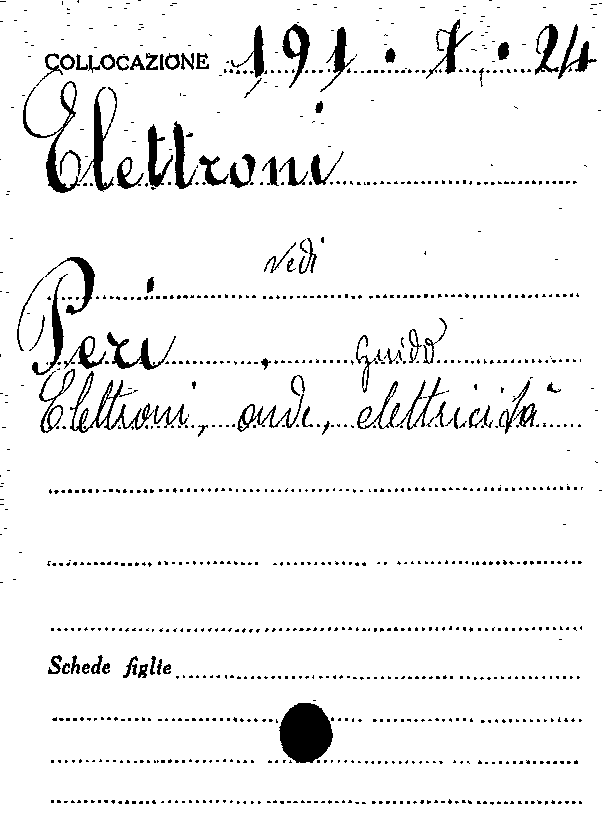 COLLOCAZIONE 191.7.24
Elettroni
vedi
Peri, Guido
Elettroni, onde, elettricità
Schede figlie